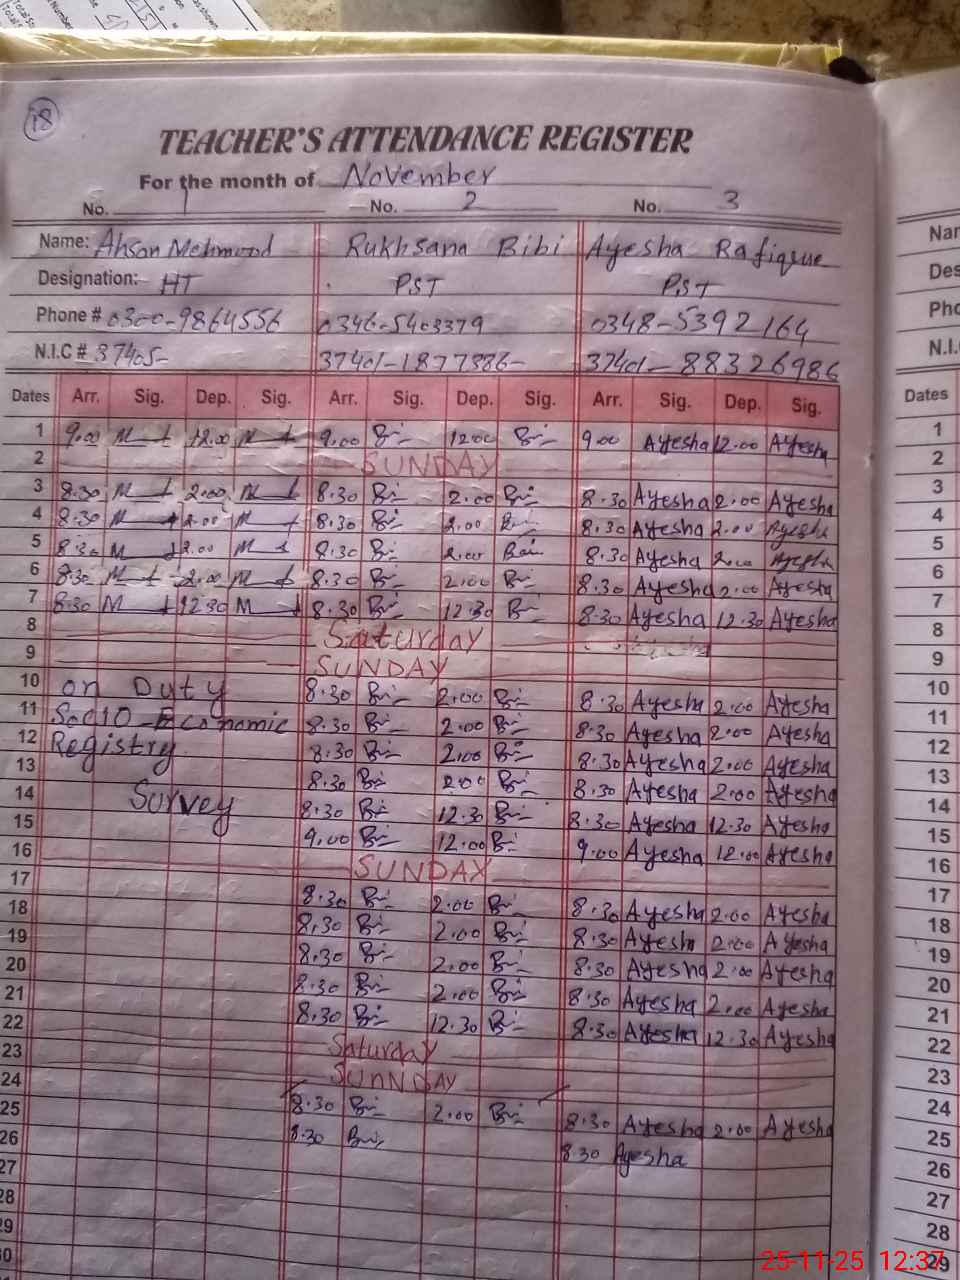 18
TEACHER'S ATTENDANCE REGISTER
For the month of November
No. 1 No. 2 No. 3
Name: Ahsan Mehmood Rukhsana Bibi Ayesha Rafique
Designation:- HT PST PST
Phone # 0300-9864556 0346-5403379 0348-5392164
N.I.C # 37405- 37401-1877386- 37401-88326986
Dates Arr. Sig. Dep. Sig. Arr. Sig. Dep. Sig. Arr. Sig. Dep. Sig.
1 9.00 12.00 9.00 12.00 9.00 Ayesha 12.00 Ayesha 1
2 SUNDAY 2
3 8.30 2.00 8.30 2.00 8.30 Ayesha 2.00 Ayesha 3
4 8.30 2.00 8.30 2.00 8.30 Ayesha 2.00 Ayesha 4
5 8.30 2.00 8.30 2.00 8.30 Ayesha 2.00 Ayesha 5
6 8.30 2.00 8.30 2.00 8.30 Ayesha 2.00 Ayesha 6
7 8.30 12.30 8.30 12.30 8.30 Ayesha 12.30 Ayesha 7
8 Saturday 8
9 SUNDAY 9
10 on Duty 8.30 2.00 8.30 Ayesha 2.00 Ayesha 10
11 Socio-Economic 8.30 2.00 8.30 Ayesha 2.00 Ayesha 11
12 Registry 8.30 2.00 8.30 Ayesha 2.00 Ayesha 12
13 8.30 2.00 8.30 Ayesha 2.00 Ayesha 13
14 Survey 8.30 12.30 8.30 Ayesha 12.30 Ayesha 14
15 9.00 12.00 9.00 Ayesha 12.00 Ayesha 15
16 SUNDAY 16
17 8.30 2.00 8.30 Ayesha 2.00 Ayesha 17
18 8.30 2.00 8.30 Ayesha 2.00 Ayesha 18
19 8.30 2.00 8.30 Ayesha 2.00 Ayesha 19
20 8.30 2.00 8.30 Ayesha 2.00 Ayesha 20
21 8.30 12.30 8.30 Ayesha 12.30 Ayesha 21
22 Saturday 22
23 SUNNDAY 23
24 8.30 2.00 8.30 Ayesha 2.00 Ayesha 24
25 8.30 8.30 Ayesha 25
26 26
27 27
28 28
29 29
30
Dates
25-11-25 12:37